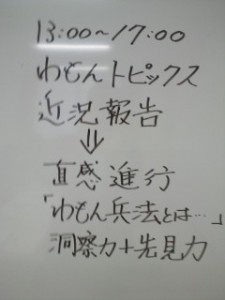 13:00~17:00
わもんトピックス
近況報告
⇓
直感進行
「わもん兵法とは…」
洞察力+先見力